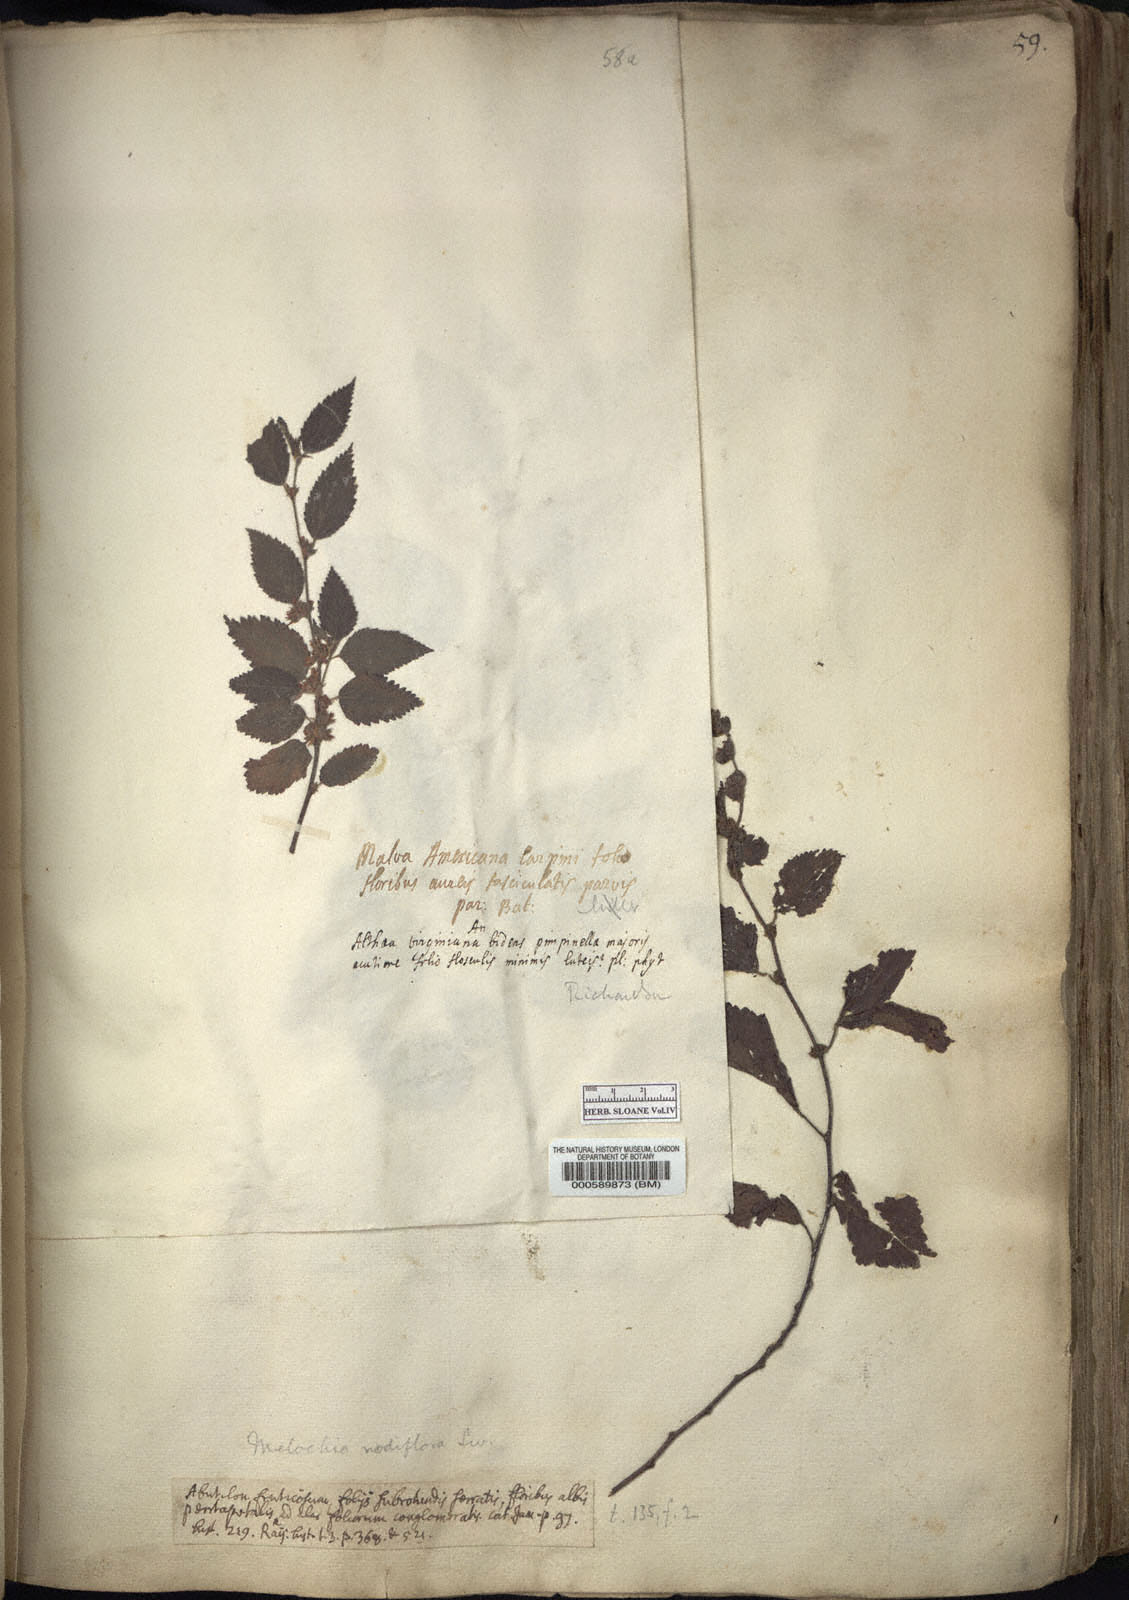 59.
58a
Malva Americana Carpini folio
floribus aureis fasciculatis parvis
par: Bat:
An
Althæa virginiana bidens pimpinellæ majoris
acutiore folio flosculis minimis luteis: pl: phyt
Richardson
mm 1 2 3
HERB. SLOANE Vol.IV
THE NATURAL HISTORY MUSEUM, LONDON
DEPARTMENT OF BOTANY
000589873 (BM)
Melochia nodiflora Sw.
Abutilon fruticosum, folijs subrotundis serratis, floribus albis
pentapetalis, ad alas foliorum conglomeratis. cat. Jam. p. 97.
hist. 219. Raij. hist. t. 3. p. 368. & 521.
t. 135, f. 2